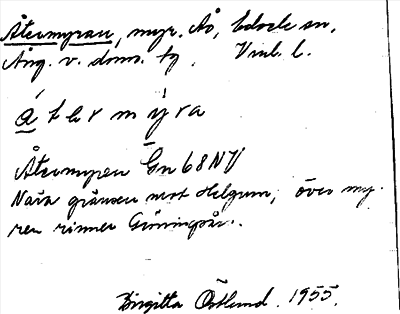 Återmyran, myr. Ås, Edsele sn,
Ång. v. doms. fg, Vml. l.
á t e r m ý r a
Återmyran Gn 68 NV
Nära gränsen mot Helgum, över my-
ren rinner Gröningsån.
Birgitta Östlund. 1955.